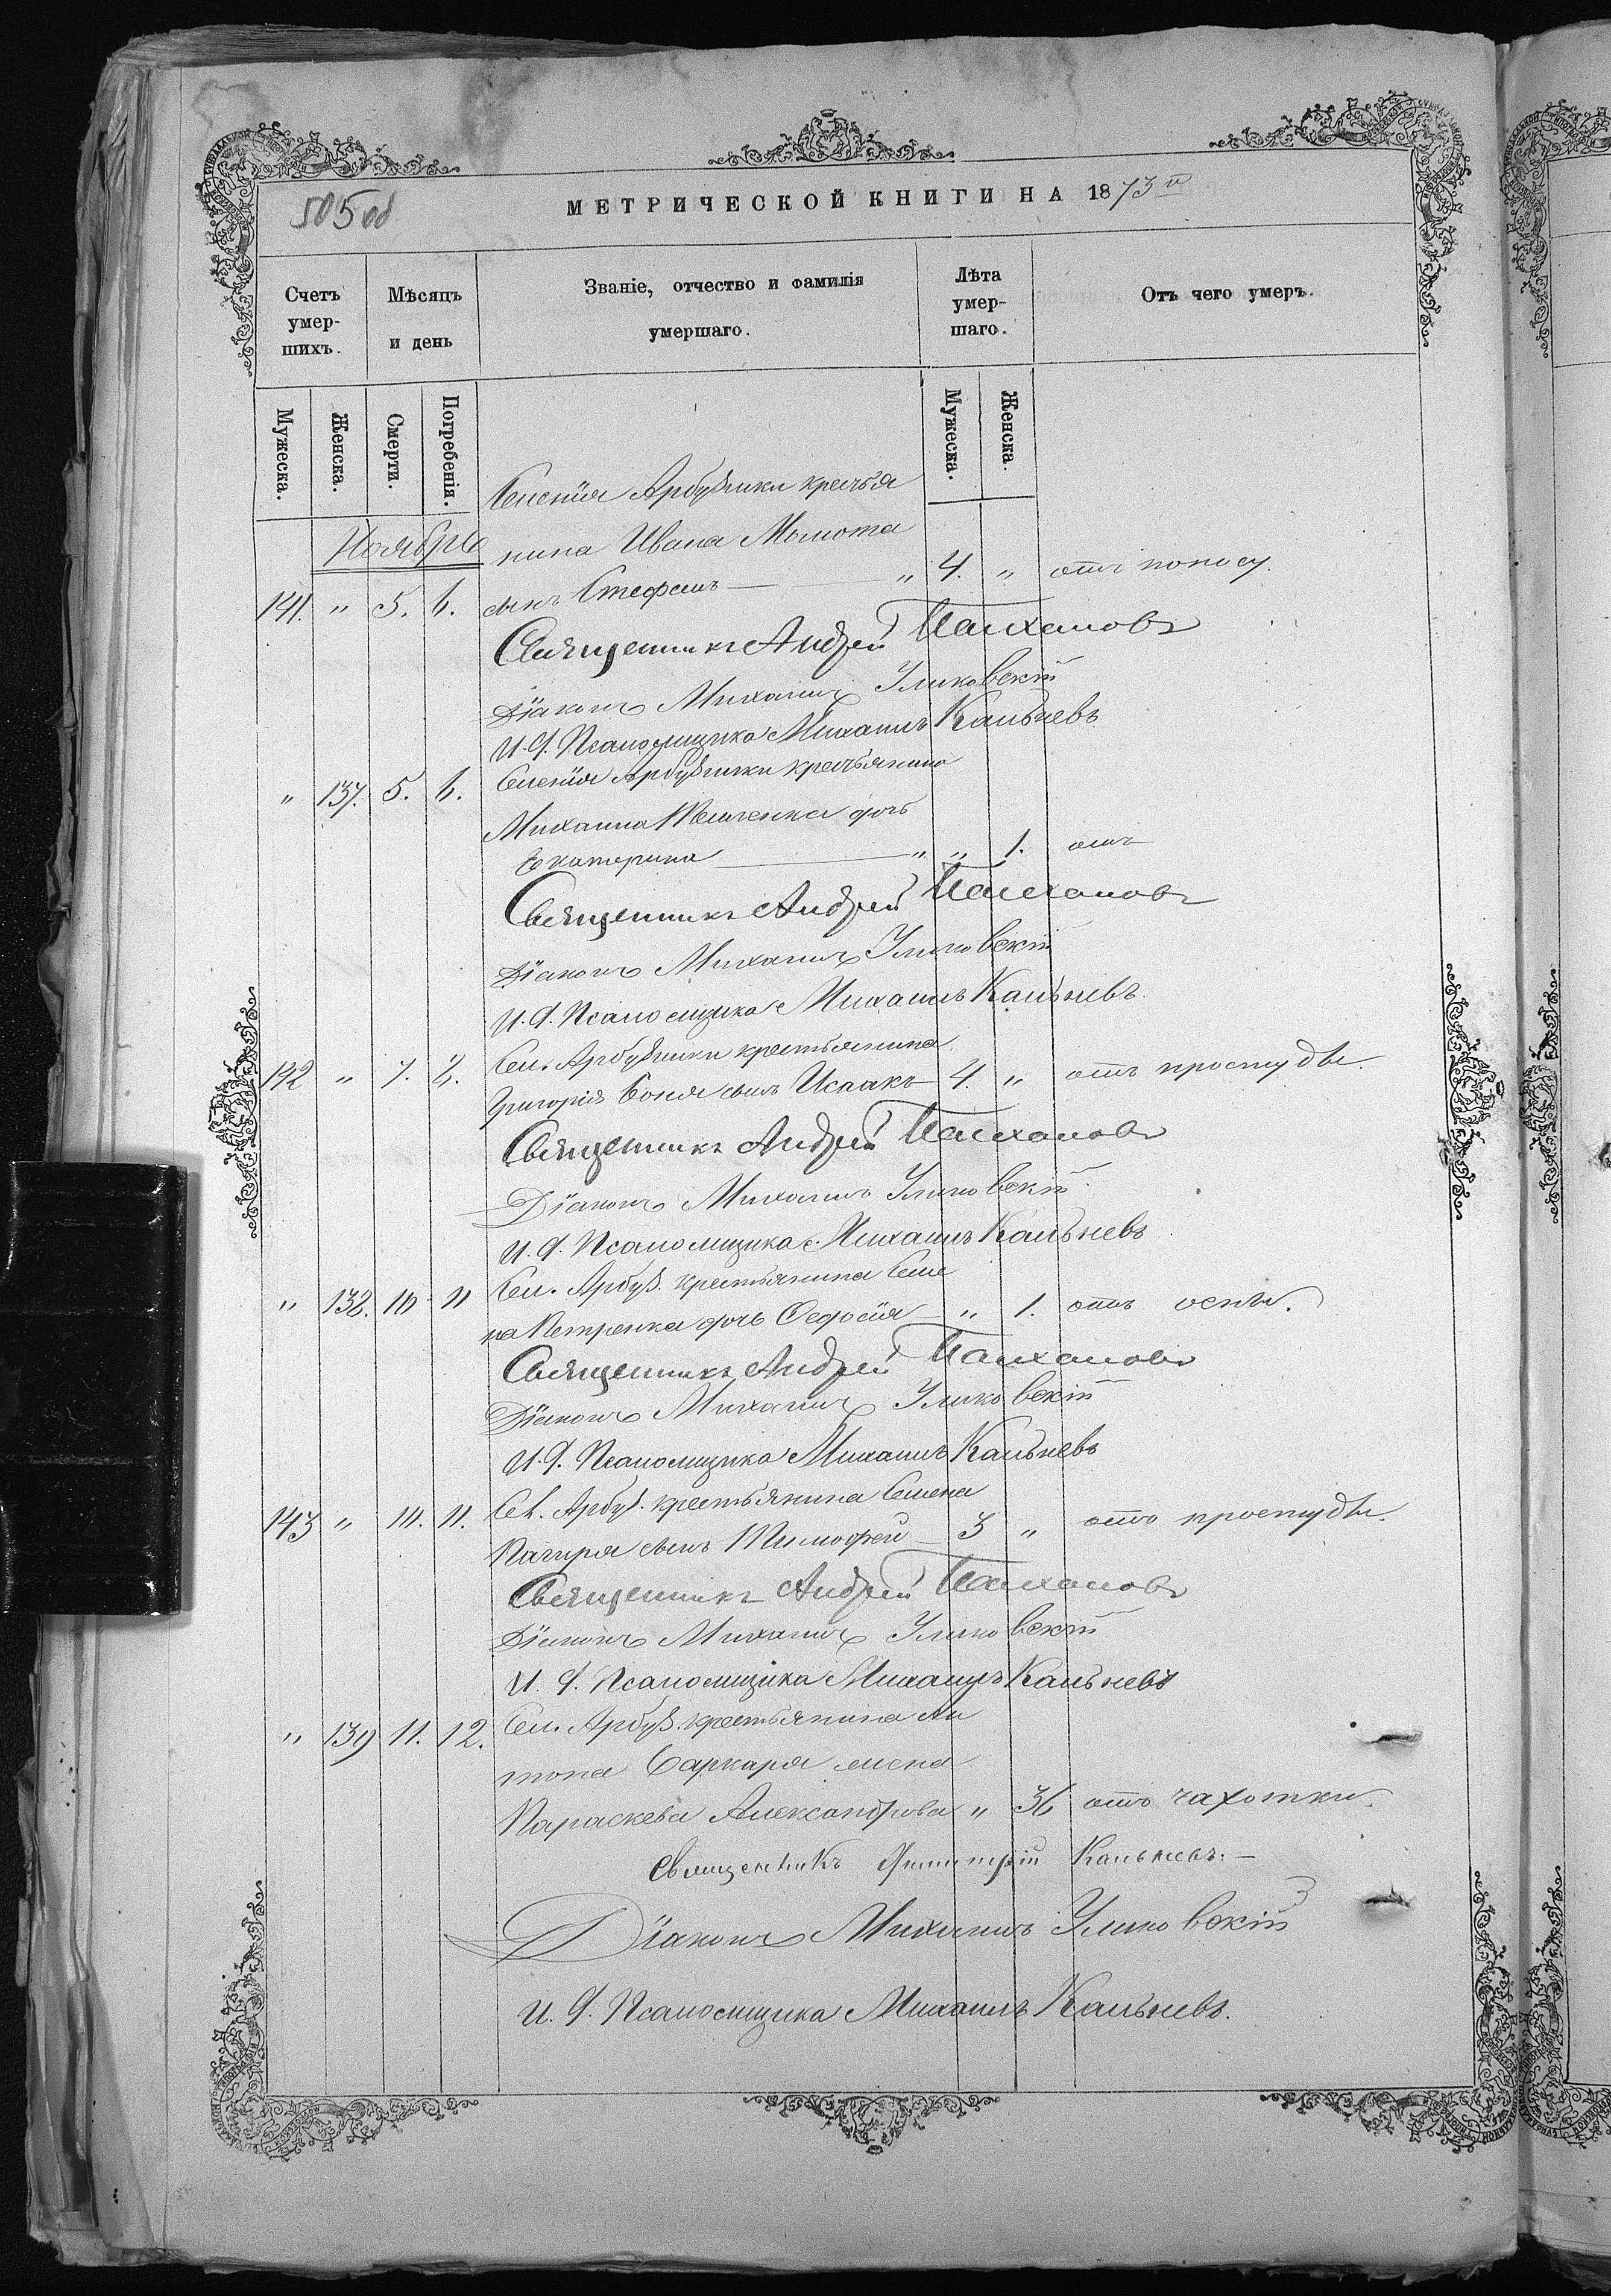 505 об
МЕТРИЧЕСКОЙ КНИГИ НА 1873 й
Счетъ умершихъ.
Мѣсяцъ и день
Званіе, отчество и фамилія умершаго.
Лѣта умершаго.
Отъ чего умеръ.
Мужеска.
Женска.
Смерти.
Погребенія.
Мужеска.
Женска.
Ноябрь
Селенія Арбузинки крестья
нина Ивана
141. " 5. 6. сынъ Стефанъ — " 4. " отъ поносу.
Священникъ Андрей Палхановъ
Діаконъ Михаилъ Уликовскій
И. Д. Псаломщика Михаилъ Кальневъ
" 137. 5. 6. Селенія Арбузинки крестьянина
Михаила дочь
Екатерина — " " 1. отъ
Священникъ Андрей Палхановъ
Діаконъ Михаилъ Уликовскій
И. Д. Псаломщика Михаилъ Кальневъ.
142 " 7. 8. Сел. Арбузинки крестьянина
Григорія сынъ Исаакъ — 4. " отъ простуды.
Священникъ Андрей Палхановъ
Діаконъ Михаилъ Уликовскій
И. Д. Псаломщика Михаилъ Кальневъ
" 138. 10 11 Сел. Арбуз. крестьянина Семе
на Петренка дочь Феодосія — " 1. отъ оспы.
Священникъ Андрей Палхановъ
Діаконъ Михаилъ Уликовскій
И. Д. Псаломщика Михаилъ Кальневъ
143 " 10. 11. Сел. Арбуз. крестьянина Семена
сынъ Тимофей — 3 " отъ простуды.
Священникъ Андрей Палхановъ
Діаконъ Михаилъ Уликовскій
И. Д. Псаломщика Михаилъ Кальневъ
" 139 11. 12. Сел. Арбуз. крестьянина Ан
тона жена
Параскева Александрова " 36 отъ чахотки.
Священникъ Димитрій Кальневъ. —
Діаконъ Михаилъ Уликовскій
И. Д. Псаломщика Михаилъ Кальневъ.